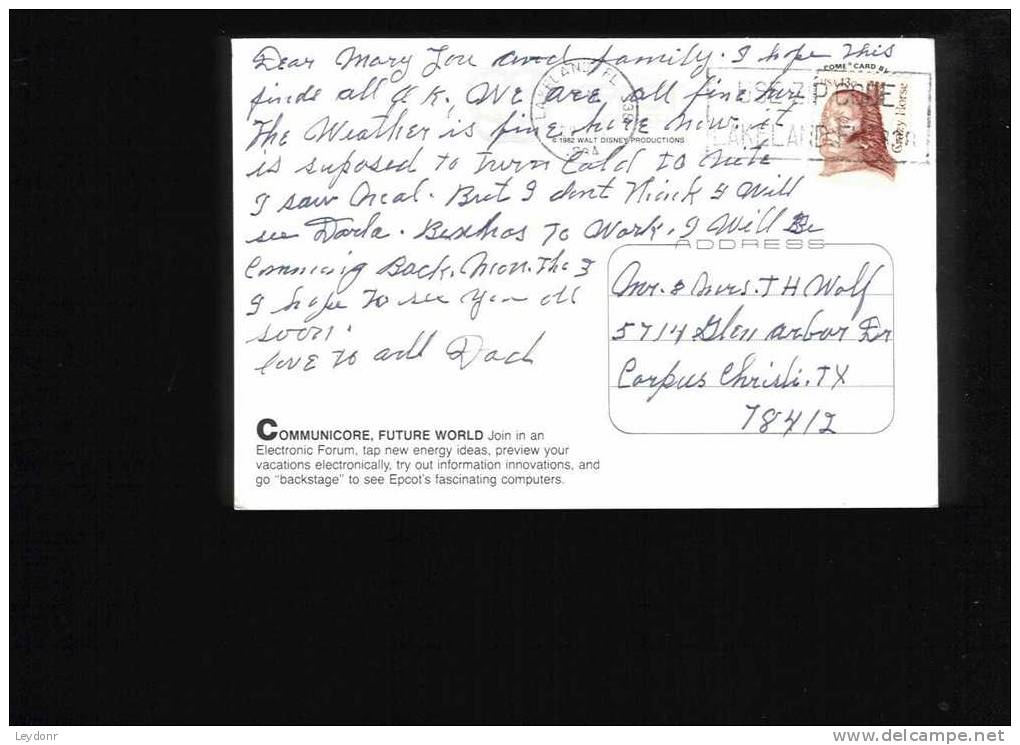 Dear Mary Lou and family. I hope this
finds all O.K., WE are all fine here
The Weather is fine here now, it
is supposed to turn Cold to nite
I saw Neal. But I dont think I will
see Darla. to Work. I Will Be
Comming Back. Mon. The 3
I hope to see you all
soon.
love to all Dad
POME" CARD BY
LAKELAND FL 338
© 1982 WALT DISNEY PRODUCTIONS
USE ZIP CODE
LAKELAND FL
USA 13c
Crazy Horse
ADDRESS
Mr. & Mrs. T H Wolf
5714 Glen arbor Dr
Corpus Christi. TX
78412
COMMUNICORE, FUTURE WORLD Join in an
Electronic Forum, tap new energy ideas, preview your
vacations electronically, try out information innovations, and
go "backstage" to see Epcot's fascinating computers.
Leydonr
www.delcampe.net